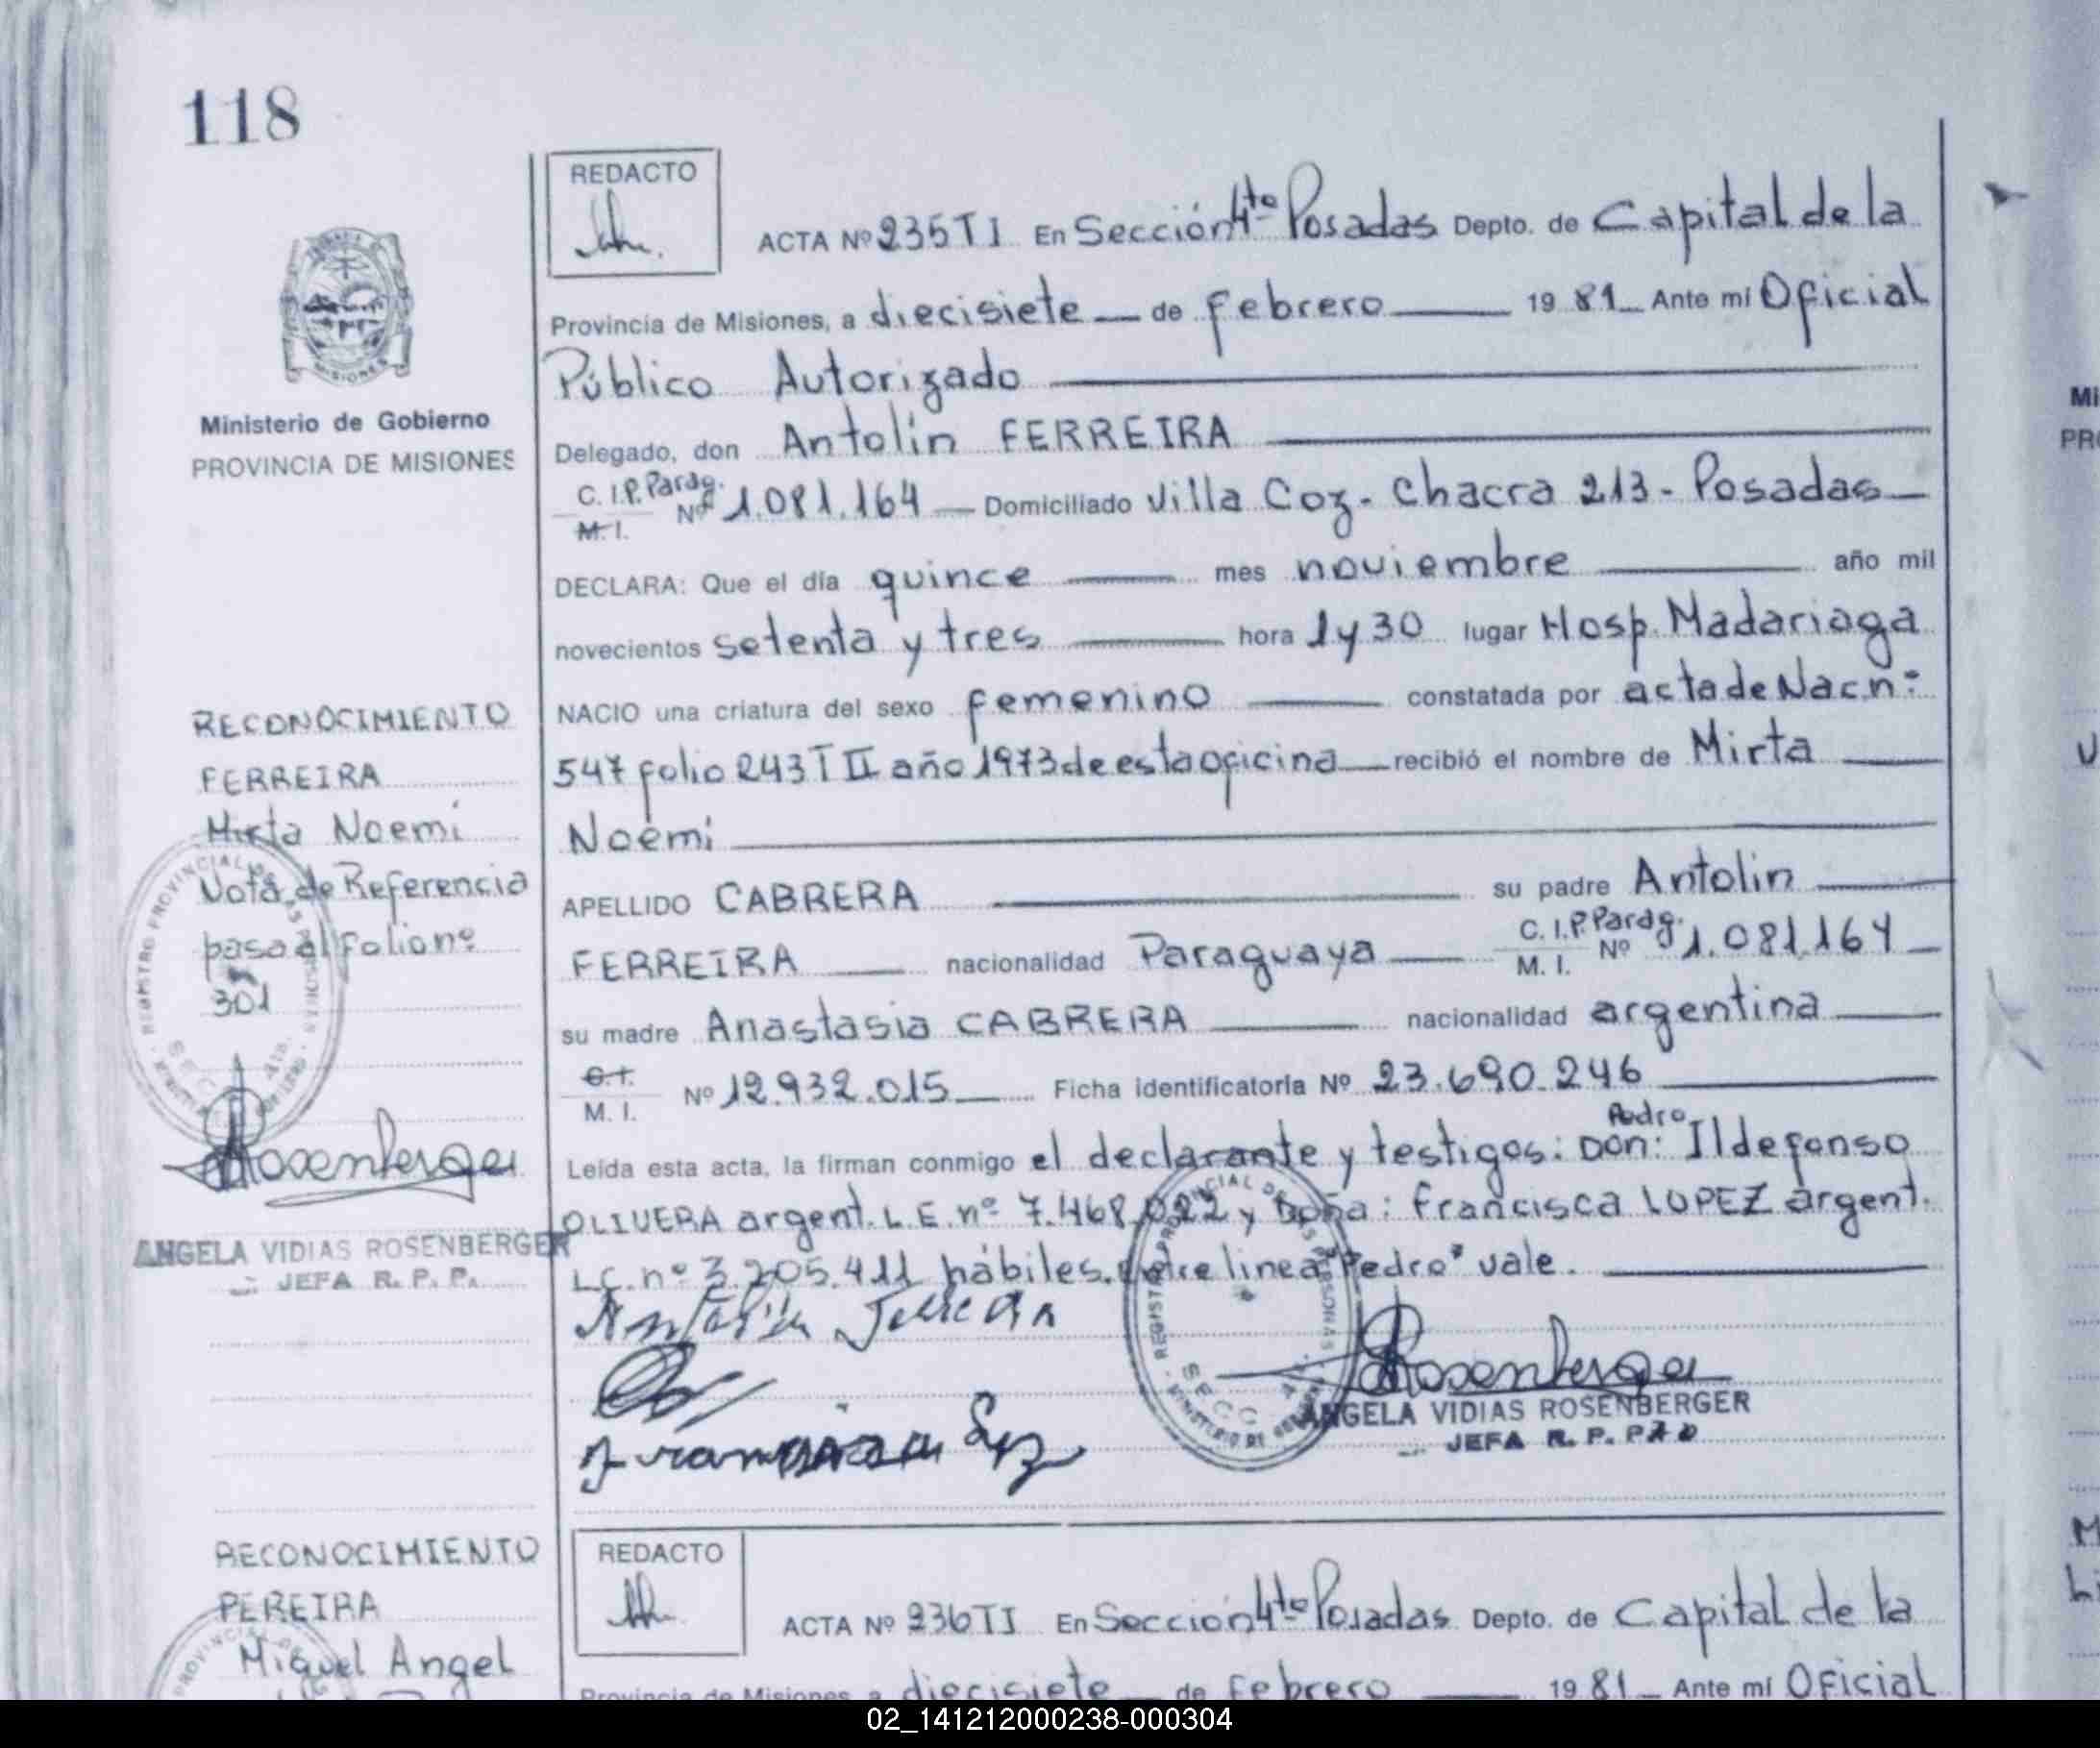 118
REDACTO
ACTA Nº 235 T I En Sección 4ta Posadas Depto. de Capital de la
Provincia de Misiones, a diecisiete de febrero 1981 Ante mí Oficial
Público Autorizado
Delegado, don Antolin FERREIRA
C. I.P. Parag. Nº 1.081.164 Domiciliado Villa Coz. Chacra 213 - Posadas
M. I.
DECLARA: Que el día quince mes noviembre año mil
novecientos setenta y tres hora 1 y 30 lugar Hosp. Madariaga
NACIO una criatura del sexo femenino constatada por acta de Nac. nº
547 folio 243 T II año 1973 de esta oficina recibió el nombre de Mirta
Noemi
APELLIDO CABRERA su padre Antolin
FERREIRA nacionalidad Paraguaya C. I.P. Parag. Nº 1.081.164
M. I.
su madre Anastasia CABRERA nacionalidad argentina
C. I.
M. I. Nº 12.932.015 Ficha identificatoria Nº 23.690.246
Pedro
Leída esta acta, la firman conmigo el declarante y testigos: Don: Ildefonso
OLIVERA argent. L.E. nº 7.468.022 y Doña: Francisca LOPEZ argent.
L.C. nº 3.205.411 hábiles. Entre linea "Pedro" vale.
Rosenberger
ANGELA VIDIAS ROSENBERGER
JEFA R. P. P.
Ministerio de Gobierno
PROVINCIA DE MISIONES
RECONOCIMIENTO
FERREIRA
Mirta Noemi
Nota de Referencia
pasa al Folio nº
301
Rosenberger
ANGELA VIDIAS ROSENBERGER
JEFA R. P. P.
RECONOCIMIENTO
PEREIRA
Miguel Angel
REDACTO
ACTA Nº 236 T I En Sección 4ta Posadas Depto. de Capital de la
Provincia de Misiones a diecisiete de febrero 1981 Ante mí Oficial
02_141212000238-000304